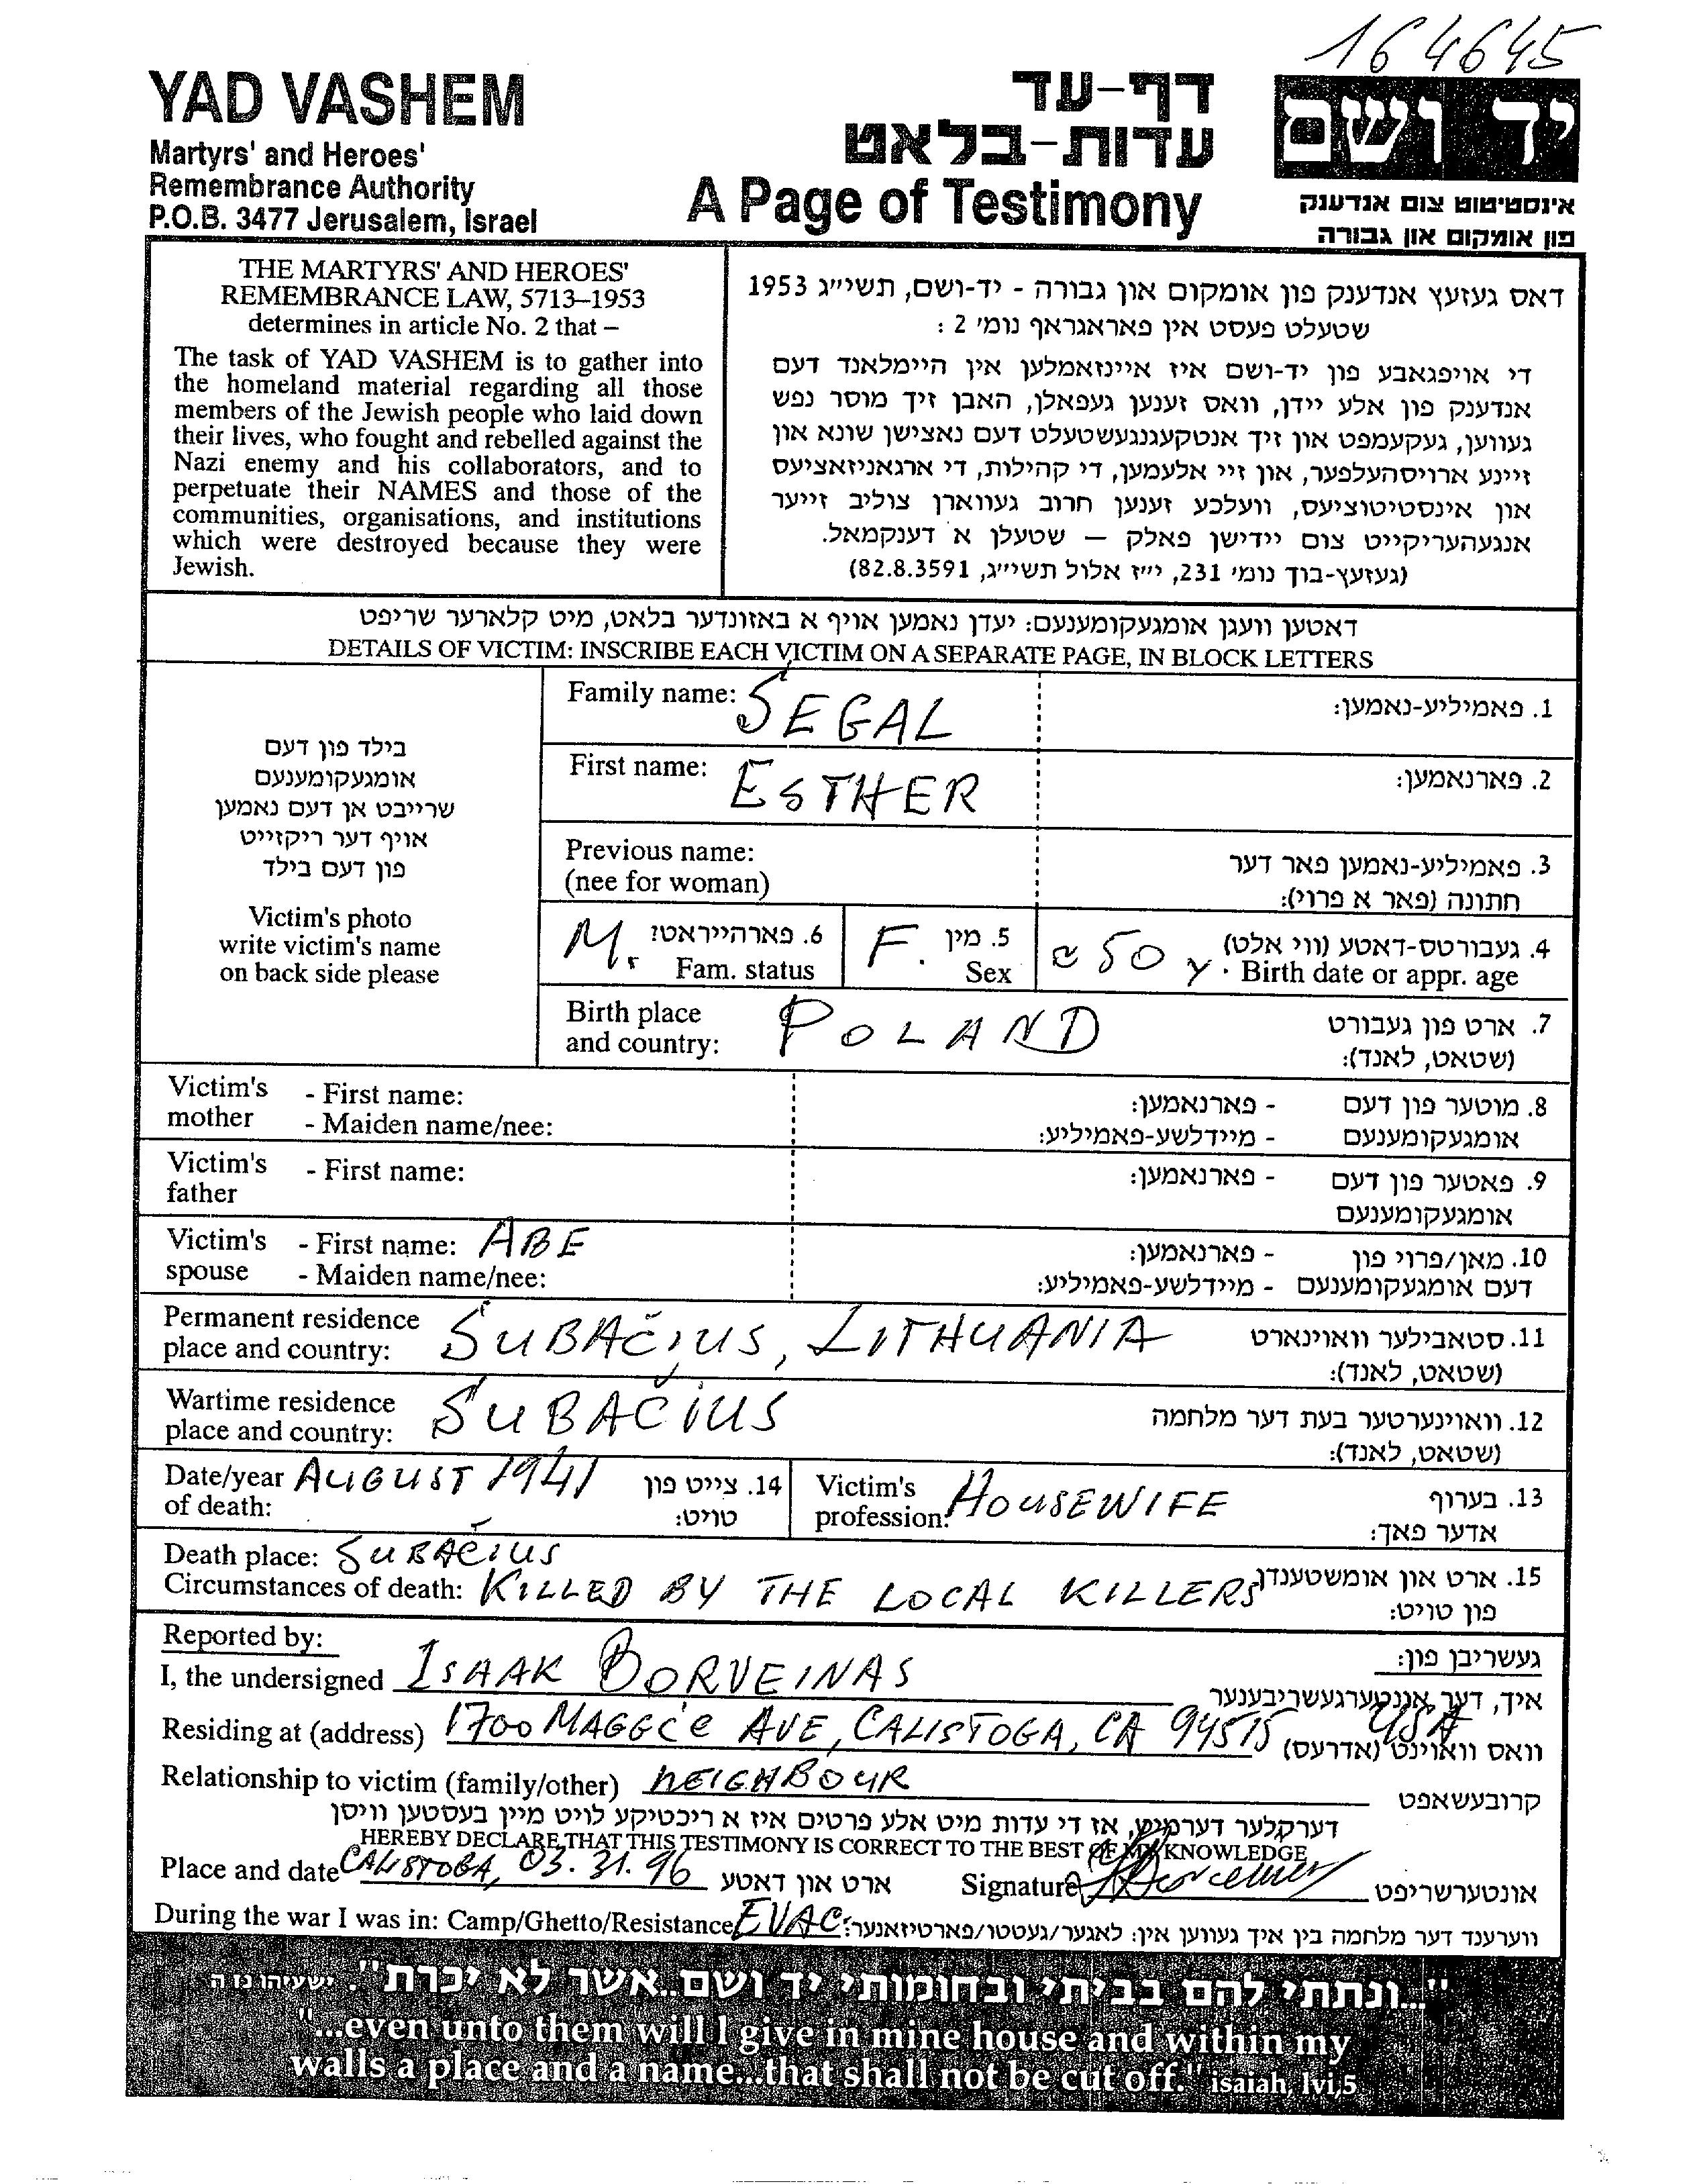 164645
YAD VASHEM
Martyrs' and Heroes'
Remembrance Authority
P.O.B. 3477 Jerusalem, Israel
דף-עד
עדות-בלאט
A Page of Testimony
יד ושם
אינסטיטוט צום אנדענק
פון אומקום און גבורה
THE MARTYRS' AND HEROES'
REMEMBRANCE LAW, 5713–1953
determines in article No. 2 that –
The task of YAD VASHEM is to gather into
the homeland material regarding all those
members of the Jewish people who laid down
their lives, who fought and rebelled against the
Nazi enemy and his collaborators, and to
perpetuate their NAMES and those of the
communities, organisations, and institutions
which were destroyed because they were
Jewish.
דאס געזעץ אנדענק פון אומקום און גבורה - יד-ושם, תשי״ג 1953
שטעלט פעסט אין פאראגראף נומ׳ 2 :
די אויפגאבע פון יד-ושם איז איינזאמלען אין היימלאנד דעם
אנדענק פון אלע יידן, וואס זענען געפאלן, האבן זיך מוסר נפש
געווען, געקעמפט און זיך אנטקעגנגעשטעלט דעם נאצישן שונא און
זיינע ארויסהעלפער, און זיי אלעמען, די קהילות, די ארגאניזאציעס
און אינסטיטוציעס, וועלכע זענען חרוב געווארן צוליב זייער
אנגעהעריקייט צום יידישן פאלק — שטעלן א דענקמאל.
(געזעץ-בוך נומ׳ 231, י״ז אלול תשי״ג, 82.8.3591)
דאטען וועגן אומגעקומענעם: יעדן נאמען אויף א באזונדער בלאט, מיט קלארער שריפט
DETAILS OF VICTIM: INSCRIBE EACH VICTIM ON A SEPARATE PAGE, IN BLOCK LETTERS
בילד פון דעם
אומגעקומענעם
שרייבט אן דעם נאמען
אויף דער ריקזייט
פון דעם בילד
Victim's photo
write victim's name
on back side please
Family name: SEGAL 1. פאמיליע-נאמען:
First name: ESTHER 2. פארנאמען:
Previous name: 3. פאמיליע-נאמען פאר דער
(nee for woman) חתונה (פאר א פרוי):
M. 6. פארהייראט? F. 5. מין ~ 50 y. 4. געבורטס-דאטע (ווי אלט)
Fam. status Sex Birth date or appr. age
Birth place POLAND 7. ארט פון געבורט
and country: (שטאט, לאנד):
Victim's - First name: - פארנאמען: 8. מוטער פון דעם
mother - Maiden name/nee: - מיידלשע-פאמיליע: אומגעקומענעם
Victim's - First name: - פארנאמען: 9. פאטער פון דעם
father אומגעקומענעם
Victim's - First name: ABE - פארנאמען: 10. מאן/פרוי פון
spouse - Maiden name/nee: - מיידלשע-פאמיליע: דעם אומגעקומענעם
Permanent residence ŠUBAČIUS, LITHUANIA 11. סטאבילער וואוינארט
place and country: (שטאט, לאנד):
Wartime residence ŠUBAČIUS 12. וואוינערטער בעת דער מלחמה
place and country: (שטאט, לאנד):
Date/year AUGUST 1941 14. צייט פון Victim's HOUSEWIFE 13. בערוף
of death: טויט: profession: אדער פאך:
Death place: ŠUBAČIUS
Circumstances of death: KILLED BY THE LOCAL KILLERS 15. ארט און אומשטענדן
פון טויט:
Reported by: געשריבן פון:
I, the undersigned ISAAK BORVEINAS איך, דער אונטערגעשריבענער
Residing at (address) 1700 MAGGie AVE, CALISTOGA, CA 94515 USA וואס וואוינט (אדרעס)
Relationship to victim (family/other) NEIGHBOUR קרובעשאפט
דערקלער דערמיט, אז די עדות מיט אלע פרטים איז א ריכטיקע לויט מיין בעסטען וויסן
HEREBY DECLARE THAT THIS TESTIMONY IS CORRECT TO THE BEST OF MY KNOWLEDGE
Place and date CALISTOGA, 03.31.96 ארט און דאטע Signature אונטערשריפט
During the war I was in: Camp/Ghetto/Resistance EVAC. ווערענד דער מלחמה בין איך געווען אין: לאגער/געטטו/פארטיזאנער:
"...ונתתי להם בביתי ובחומותי יד ושם..אשר לא יכרת". ישעיהו נו ה
"...even unto them will I give in mine house and within my
walls a place and a name...that shall not be cut off." isaiah, lvi,5